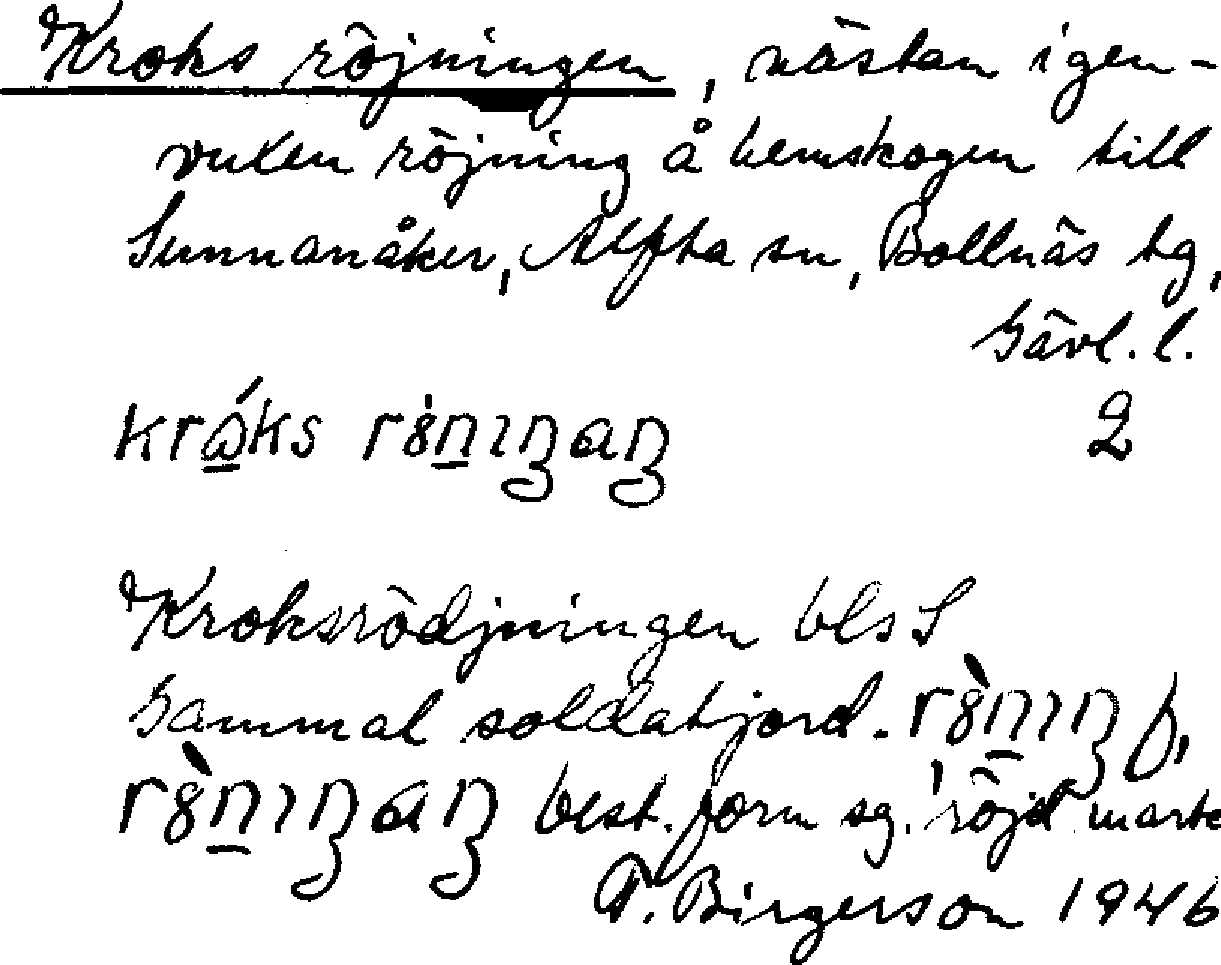 Kroks röjningen, nästan igen-
vuxen röjning å hemskogen till
Sunnanåker, Alfta sn, Bollnäs tg,
Gävl. l.
2
Kroksrödjningen bls S
Gammal soldatjord.
best. form sg. 'röjd mark
T. Birgerson 1946